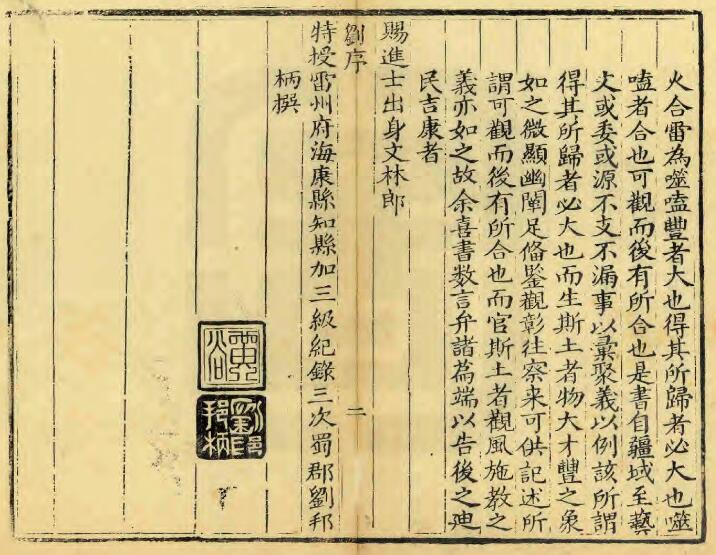 火合雷為噬嗑豐者大也得其所歸者必大也噬
嗑者合也可觀而後有所合也是書自疆域至藝
文或委或源不支不漏事以彙聚義以例該所謂
得其所歸者必大也而生斯土者物大才豐之象
如之微顯幽闡足俻鑒觀彰往察来可供記述所
謂可觀而後有所合也而官斯土者觀風施教之
義亦如之故余喜書数言弁諸篇端以告後之廸
民吉康者
賜進士出身文林郎
劉序
二
特授雷州府海康縣知縣加三級紀錄三次蜀郡劉邦
柄撰
劉印邦柄